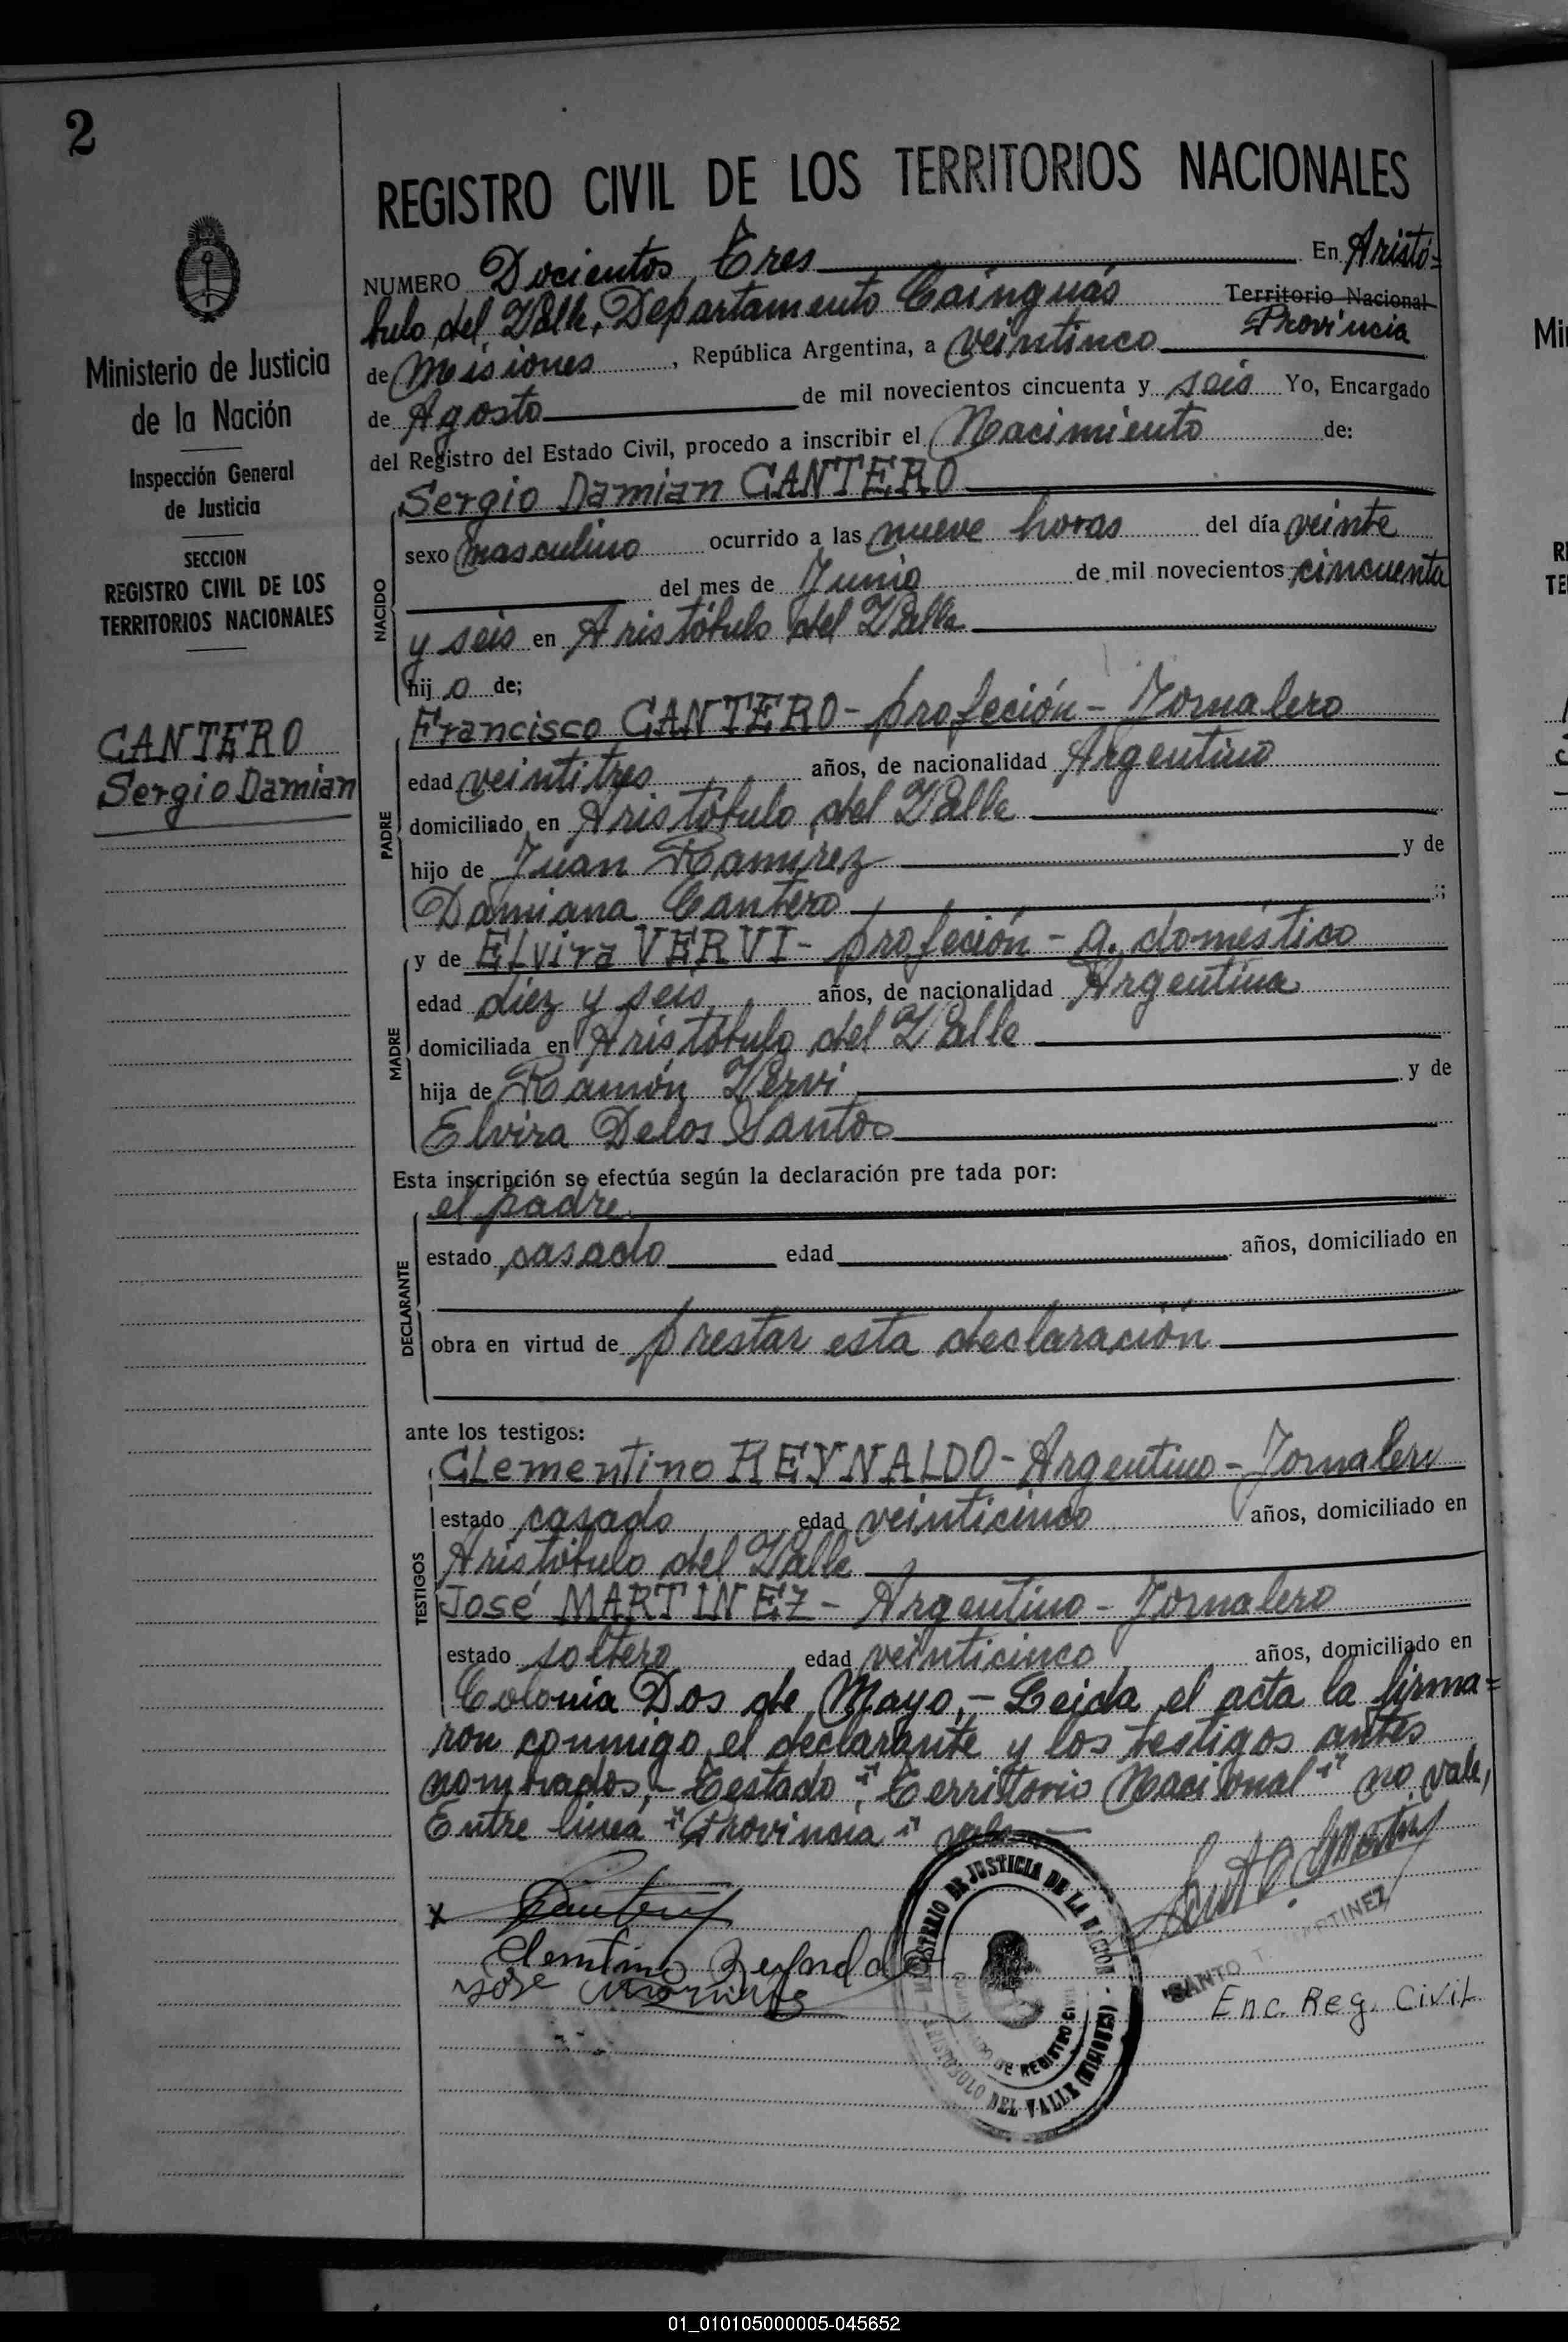 2
REGISTRO CIVIL DE LOS TERRITORIOS NACIONALES
NUMERO Docientos Tres En Aristó=
bulo del Valle, Departamento Cainguás Territorio Nacional
Provincia
de Misiones, República Argentina, a veintinco
de Agosto de mil novecientos cincuenta y seis Yo, Encargado
del Registro del Estado Civil, procedo a inscribir el Nacimiento de:
Sergio Damian CANTERO
sexo masculino ocurrido a las nueve horas del día veinte
del mes de Junio de mil novecientos cincuenta
y seis en Aristóbulo del Valle
hij o de;
NACIDO
Francisco CANTERO - profeción - Jornalero
edad veintitres años, de nacionalidad Argentino
domiciliado en Aristóbulo del Valle
hijo de Juan Ramirez y de
Damiana Cantero ;
PADRE
y de Elvira VERVI - profeción - q. doméstico
edad diez y seis años, de nacionalidad Argentina
domiciliada en Aristóbulo del Valle
hija de Ramón Vervi y de
Elvira Delos Santos
MADRE
Esta inscripción se efectúa según la declaración pre tada por:
el padre
estado casado edad años, domiciliado en
obra en virtud de prestar esta declaración
DECLARANTE
ante los testigos:
Clementino REYNALDO - Argentino - Jornalero
estado casado edad veinticinco años, domiciliado en
Aristóbulo del Valle
José MARTINEZ - Argentino - Jornalero
estado soltero edad veinticinco años, domiciliado en
TESTIGOS
Colonia Dos de Mayo, - Leida el acta la firma=
ron conmigo el declarante y los testigos antes
nombrados, - Testado: "Territorio Nacional" no vale,
Entre linea "Provincia" vale
Clementino Reynaldo
José Martinez
MINISTERIO DE JUSTICIA DE LA NACION
DE REGISTRO CIVIL
ARISTOBULO DEL VALLE (MISIONES)
SANTO T. MARTINEZ
Enc. Reg. Civil
Ministerio de Justicia
de la Nación
Inspección General
de Justicia
SECCION
REGISTRO CIVIL DE LOS
TERRITORIOS NACIONALES
CANTERO
Sergio Damian
01_010105000005-045652